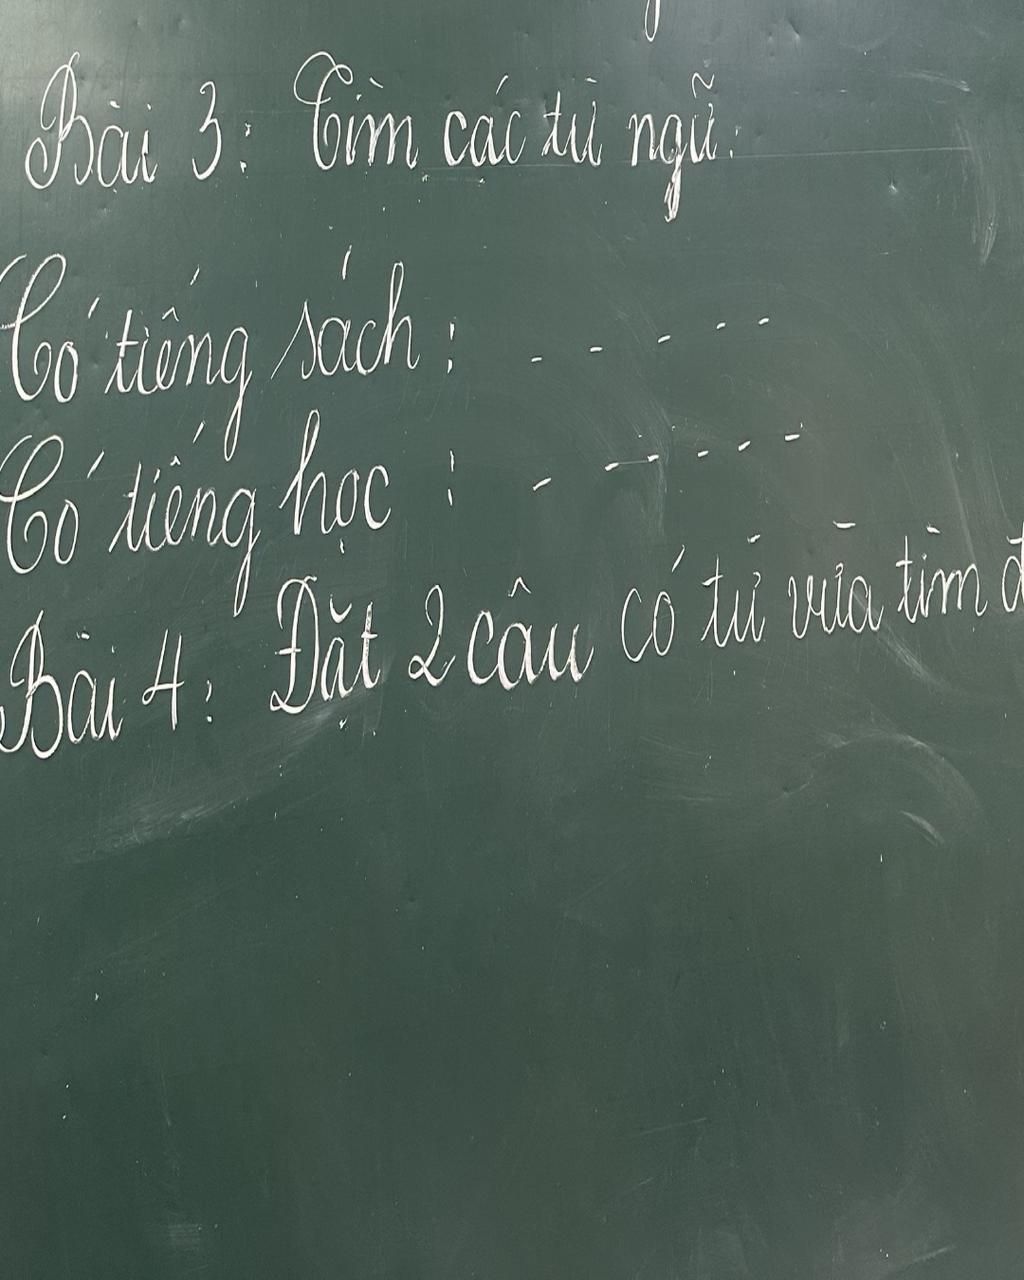 Bài 3: Tìm các từ ngữ:
Có tiếng sách : - - - - -
Có tiếng học : - - - - - -
Bài 4: Đặt 2 câu có từ vừa tìm